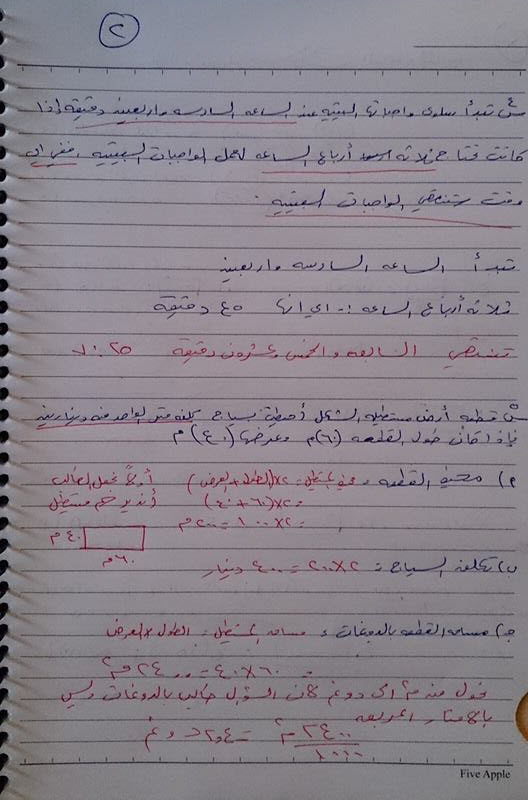 ٢
س٤ تبدأ سلوى واجباتها البيتيه عند الساعه السادسه واربعين دقيقه إذا
كانت تحتاج ثلاثه أرباع الساعه لعمل الواجبات البيتيه ، ففي اي
وقت ستنتهي الواجبات البيتيه .
تبدأ الساعه السادسه واربعين
ثلاثه أرباع الساعه :- اي انها ٤٥ دقيقة
تنتهي السابعه والخمس وعشرون دقيقة ٧:٢٥
س قطعه أرض مستطيله الشكل أحيطت بسياج تكلفه متر الواحد منه دينارين
فإذا كان طول القطعه (٦٠) م وعرضها (٤٠) م
أ) محيط القطعه ، محيط المستطيل = ٢× (الطول + العرض)
= ٢× (٦٠+٤٠)
= ٢×١٠٠ = ٢٠٠ م
أولاً نجعل الطالب
أن يرسم مستطيل
٤٠ م
٦٠ م
ب) تكلفه السياج = ٢×٢٠٠ = ٤٠٠ دينار
جـ) مساحه القطعه بالدونمات ؛ مساحه المستطيل = الطول × العرض
= ٦٠×٤٠ = ٢٤٠٠ م٢
نحول من م٢ الى دونم لان السؤال طالب بالدونمات وليس
بالامتار المربعه
٢٤٠٠ م٢ / ١٠٠٠ = ٢,٤ دونم
Five Apple